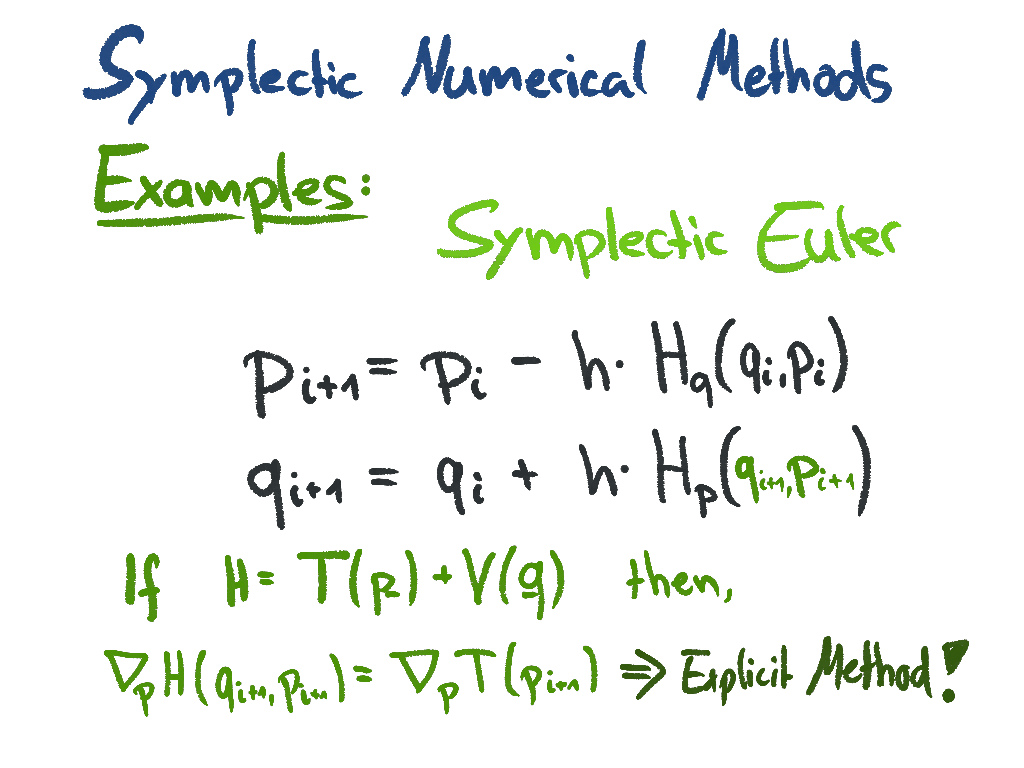 Symplectic Numerical Methods
Examples:
Symplectic Euler
p_{i+1} = p_i - h · H_q(q_i, p_i)
q_{i+1} = q_i + h · H_p(q_{i+1}, p_{i+1})
If H = T(p) + V(q) then,
∇_p H(q_{i+1}, p_{i+1}) = ∇_p T(p_{i+1}) ⇒ Explicit Method!